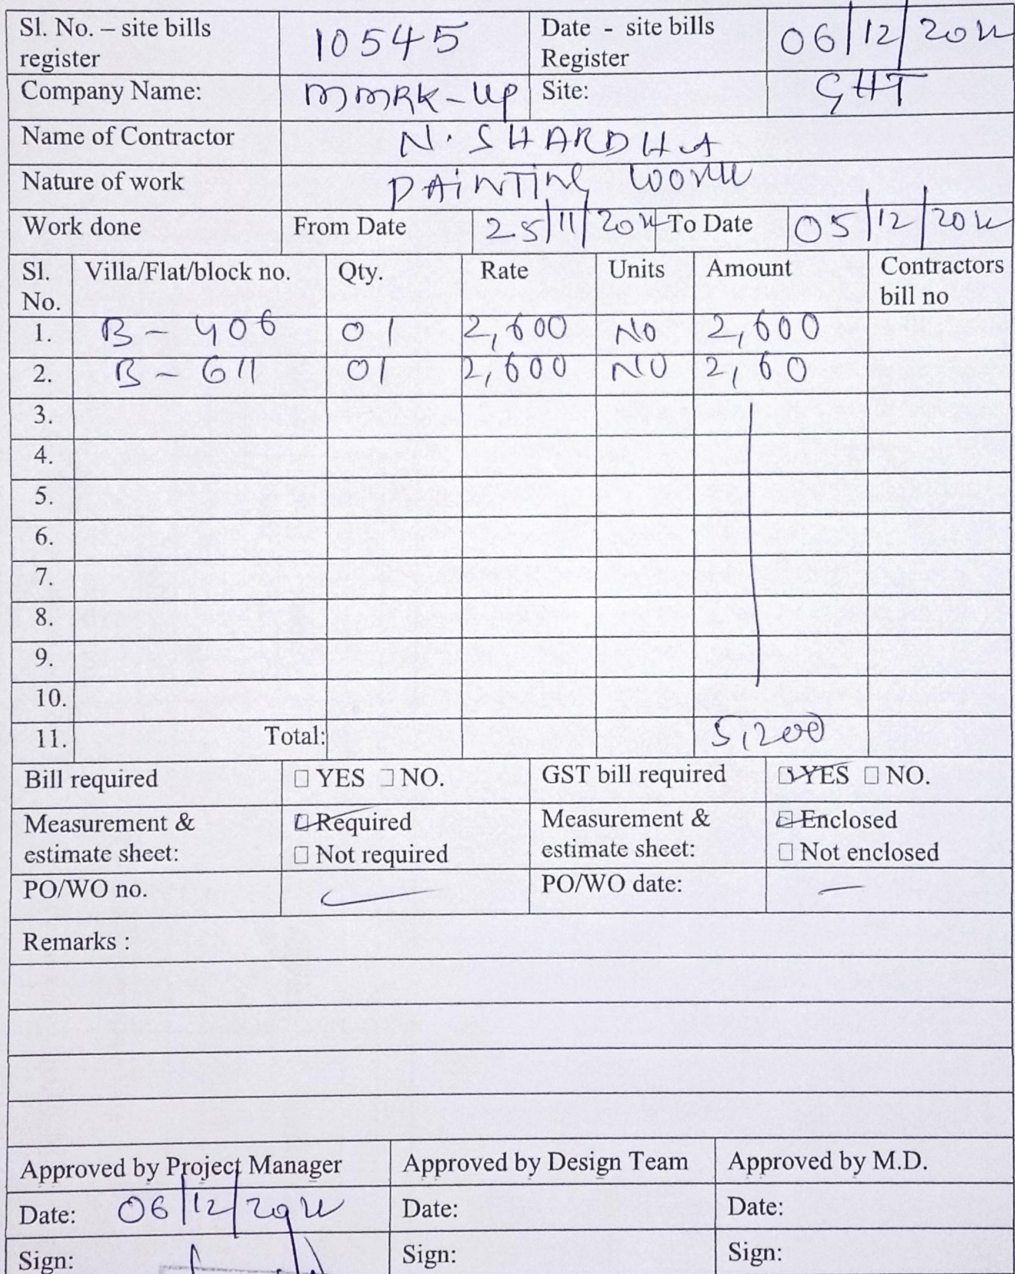 Sl. No. – site bills register 10545 Date - site bills Register 06/12/2024
Company Name: MMRK-UP Site: GHT
Name of Contractor N. SHARDHA
Nature of work PAINTING WORK
Work done From Date 25/11/2024 To Date 05/12/2024
Sl. No. Villa/Flat/block no. Qty. Rate Units Amount Contractors bill no
1. B - 406 01 2,600 NO 2,600
2. B - 611 01 2,600 NO 2,60
3.
4.
5.
6.
7.
8.
9.
10.
11. Total: 5,200
Bill required □ YES □ NO. GST bill required □ YES □ NO.
Measurement & estimate sheet: □ Required □ Not required Measurement & estimate sheet: □ Enclosed □ Not enclosed
PO/WO no. PO/WO date: —
Remarks :
Approved by Project Manager Approved by Design Team Approved by M.D.
Date: 06/12/2024 Date: Date:
Sign: Sign: Sign: